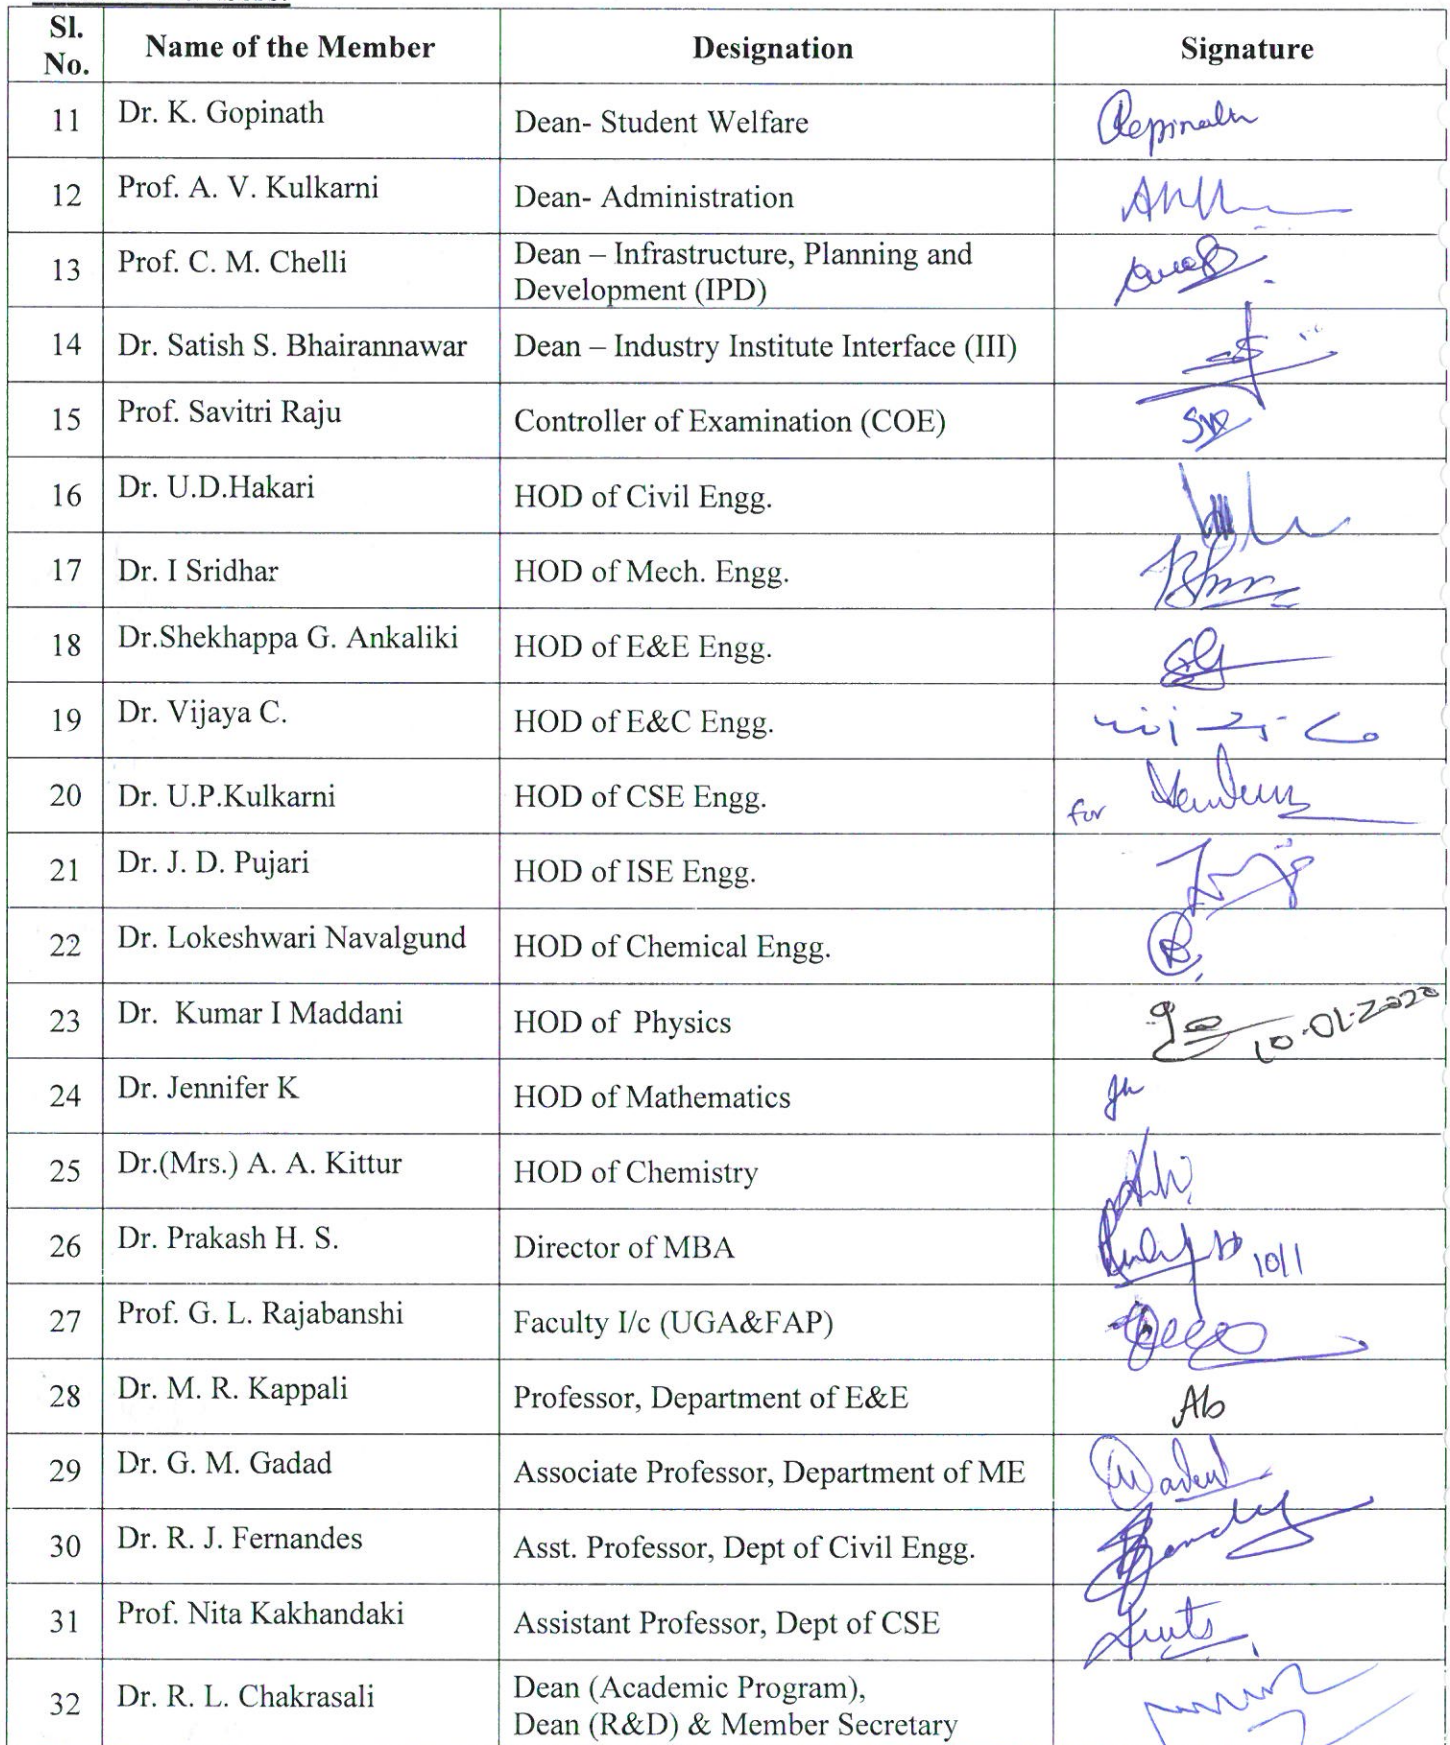 Sl. No. Name of the Member Designation Signature
11 Dr. K. Gopinath Dean- Student Welfare
12 Prof. A. V. Kulkarni Dean- Administration
13 Prof. C. M. Chelli Dean – Infrastructure, Planning and
Development (IPD)
14 Dr. Satish S. Bhairannawar Dean – Industry Institute Interface (III)
15 Prof. Savitri Raju Controller of Examination (COE)
16 Dr. U.D.Hakari HOD of Civil Engg.
17 Dr. I Sridhar HOD of Mech. Engg.
18 Dr.Shekhappa G. Ankaliki HOD of E&E Engg.
19 Dr. Vijaya C. HOD of E&C Engg.
20 Dr. U.P.Kulkarni HOD of CSE Engg. for
21 Dr. J. D. Pujari HOD of ISE Engg.
22 Dr. Lokeshwari Navalgund HOD of Chemical Engg.
23 Dr. Kumar I Maddani HOD of Physics 10-01-2020
24 Dr. Jennifer K HOD of Mathematics
25 Dr.(Mrs.) A. A. Kittur HOD of Chemistry
26 Dr. Prakash H. S. Director of MBA 10/1
27 Prof. G. L. Rajabanshi Faculty I/c (UGA&FAP)
28 Dr. M. R. Kappali Professor, Department of E&E Ab
29 Dr. G. M. Gadad Associate Professor, Department of ME
30 Dr. R. J. Fernandes Asst. Professor, Dept of Civil Engg.
31 Prof. Nita Kakhandaki Assistant Professor, Dept of CSE
32 Dr. R. L. Chakrasali Dean (Academic Program),
Dean (R&D) & Member Secretary